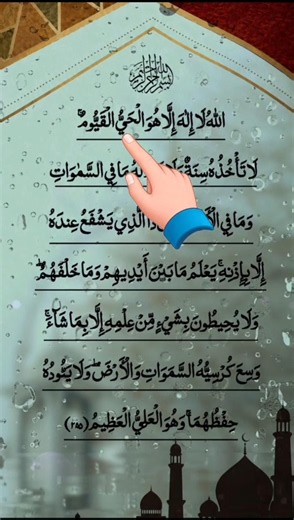 بسم الله الرحمن الرحيم
اللهُ لَا إِلٰهَ إِلَّا هُوَ الْحَيُّ الْقَيُّومُ ۚ
لَا تَأْخُذُهُ سِنَةٌ مَا فِي السَّمٰوَاتِ
وَمَا فِي الَّذِي يَشْفَعُ عِنْدَهُ
إِلَّا بِإِذْنِهٖ ۚ يَعْلَمُ مَا بَيْنَ أَيْدِيهِمْ وَمَا خَلْفَهُمْ ۖ
وَلَا يُحِيطُونَ بِشَيْءٍ مِّنْ عِلْمِهٖ إِلَّا بِمَا شَاءَ ۚ
وَسِعَ كُرْسِيُّهُ السَّمٰوَاتِ وَالْأَرْضَ ۖ وَلَا يَئُودُهُ
حِفْظُهُمَا ۚ وَهُوَ الْعَلِيُّ الْعَظِيمُ (٢٥٥)